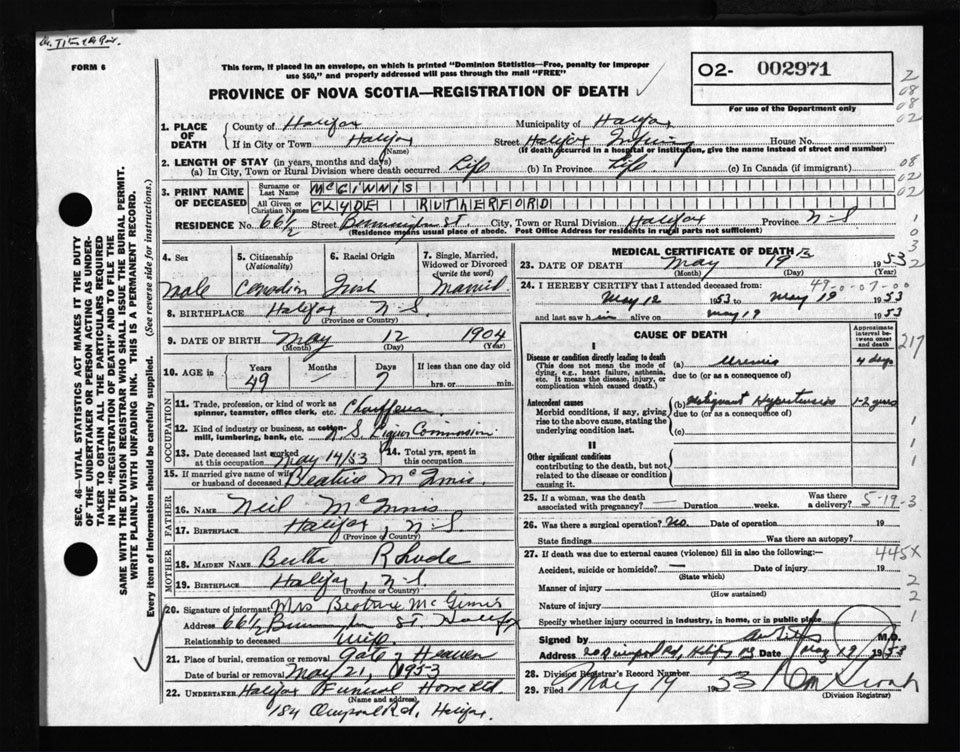 FORM 6
This form, if placed in an envelope, on which is printed "Dominion Statistics—Free, penalty for improper
use $50," and properly addressed will pass through the mail "FREE"
PROVINCE OF NOVA SCOTIA—REGISTRATION OF DEATH
02- 002971
For use of the Department only
1. PLACE OF DEATH
County of Halifax Municipality of Halifax
If in City or Town Halifax (Name) Street Halifax Infirmary House No.
(If death occurred in a hospital or institution, give the name instead of street and number)
2. LENGTH OF STAY (in years, months and days)
(a) In City, Town or Rural Division where death occurred Life (b) In Province Life (c) In Canada (if immigrant)
3. PRINT NAME OF DECEASED
Surname or Last Name McGINNIS
All Given or Christian Names CLYDE RUTHERFORD
RESIDENCE No. 66½ Street St. City, Town or Rural Division Halifax Province N-S
(Residence means usual place of abode. Post Office Address for residents in rural parts not sufficient)
4. Sex
Male
5. Citizenship (Nationality)
Canadian
6. Racial Origin
Irish
7. Single, Married, Widowed or Divorced (write the word)
Married
8. BIRTHPLACE Halifax N-S.
(Province or Country)
9. DATE OF BIRTH May 12 1904
(Month) (Day) (Year)
10. AGE in Years Months Days If less than one day old
49 — 7 hrs. or min.
OCCUPATION
11. Trade, profession, or kind of work as spinner, teamster, office clerk, etc. Chauffeur
12. Kind of industry or business, as cotton-mill, lumbering, bank, etc. N.S. Liquor Commission
13. Date deceased last worked at this occupation May 14/53
14. Total yrs. spent in this occupation
15. If married give name of wife or husband of deceased Beatrice McGinnis
FATHER
16. NAME Neil McGinnis
17. BIRTHPLACE Halifax, N-S.
(Province or Country)
MOTHER
18. MAIDEN NAME Bertha
19. BIRTHPLACE Halifax, N-S.
(Province or Country)
20. Signature of informant Mrs Beatrice McGinnis
Address 66½ St. Halifax
Relationship to deceased Wife
21. Place of burial, cremation or removal Gate of Heaven
Date of burial or removal May 21, 1953
22. UNDERTAKER Halifax Funeral Home Ltd.
(Name and address)
Rd, Halifax.
MEDICAL CERTIFICATE OF DEATH
23. DATE OF DEATH May 19 1953
(Month) (Day) (Year)
24. I HEREBY CERTIFY that I attended deceased from: 49-0-07-00
May 12 1953 to May 19 1953
and last saw him alive on May 19 1953
CAUSE OF DEATH
Approximate interval between onset and death
I
Disease or condition directly leading to death
(This does not mean the mode of dying, e.g., heart failure, asthenia, etc. It means the disease, injury, or complication which caused death.)
(a) Uremia 4 days
due to (or as a consequence of)
Antecedent causes
Morbid conditions, if any, giving rise to the above cause, stating the underlying condition last.
(b) Malignant Hypertension 1-2 years
due to (or as a consequence of)
(c)
II
Other significant conditions
contributing to the death, but not related to the disease or condition causing it.
25. If a woman, was the death associated with pregnancy? — Duration weeks. Was there a delivery? 5-19-3
26. Was there a surgical operation? No. Date of operation 19
State findings Was there an autopsy?
27. If death was due to external causes (violence) fill in also the following:— 445X
Accident, suicide or homicide? — Date of injury 19
(State which)
Manner of injury
(How sustained)
Nature of injury
Specify whether injury occurred in industry, in home, or in public place
Signed by M.D.
Address Rd, Date May 19 1953
28. Division Registrar's Record Number
29. Filed May 19 1953
(Division Registrar)
SEC. 46—VITAL STATISTICS ACT MAKES IT THE DUTY
OF THE UNDERTAKER OR PERSON ACTING AS UNDER-
TAKER TO OBTAIN ALL THE PARTICULARS REQUIRED
IN THE "REGISTRATION OF DEATH" AND TO FILE THE
SAME WITH THE DIVISION REGISTRAR WHO SHALL ISSUE THE BURIAL PERMIT.
WRITE PLAINLY WITH UNFADING INK. THIS IS A PERMANENT RECORD.
Every item of information should be carefully supplied. (See reverse side for instructions.)
2
08
08
02
08
02
1
0
3
2
217
1
1
1
1
2
2
1